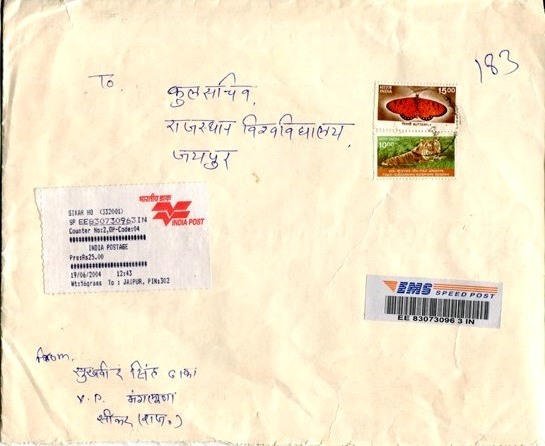 183
To.
कुलसचिव,
राजस्थान विश्वविद्यालय,
जयपुर
भारत INDIA 15.00
BUTTERFLY
10.00
भारतीय डाक
INDIA POST
SIKAR HO (332001)
SP EE830730963IN
Counter No:2,OP-Code:04
INDIA POSTAGE
Prs:Rs25.00
19/06/2004 12:43
Wt:56grams To : JAIPUR, PIN:302
EMS SPEED POST
EE 83073096 3 IN
From,
सुखवीर सिंह ढाका
V.P. मंगलूणा
सीकर (राज.)